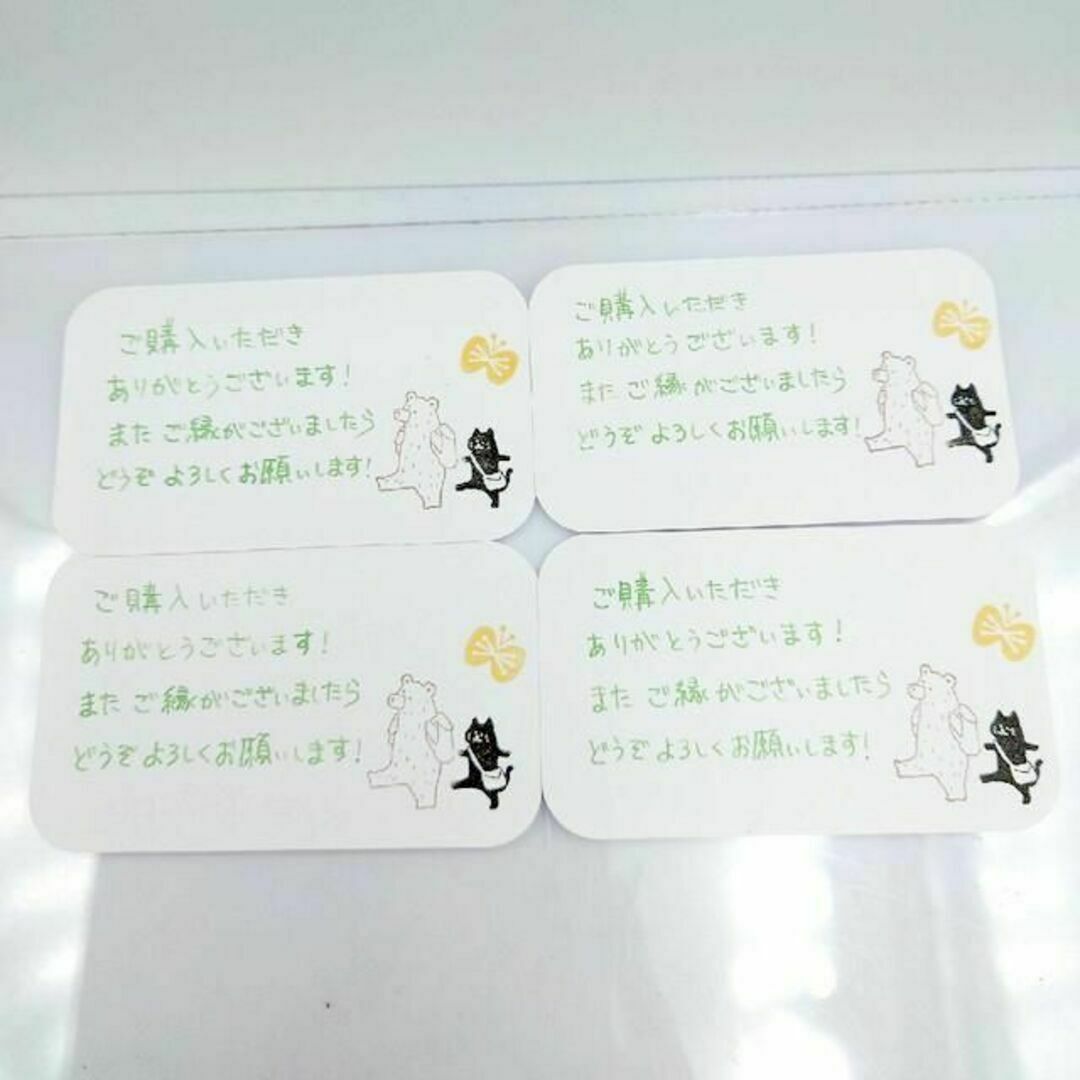 ご購入いただき
ありがとうございます!
また ご縁がございましたら
どうぞ よろしくお願いします!
ご購入いただき
ありがとうございます!
また ご縁がございましたら
どうぞ よろしくお願いします!
ご購入いただき
ありがとうございます!
また ご縁がございましたら
どうぞ よろしくお願いします!
ご購入いただき
ありがとうございます!
また ご縁がございましたら
どうぞ よろしくお願いします!